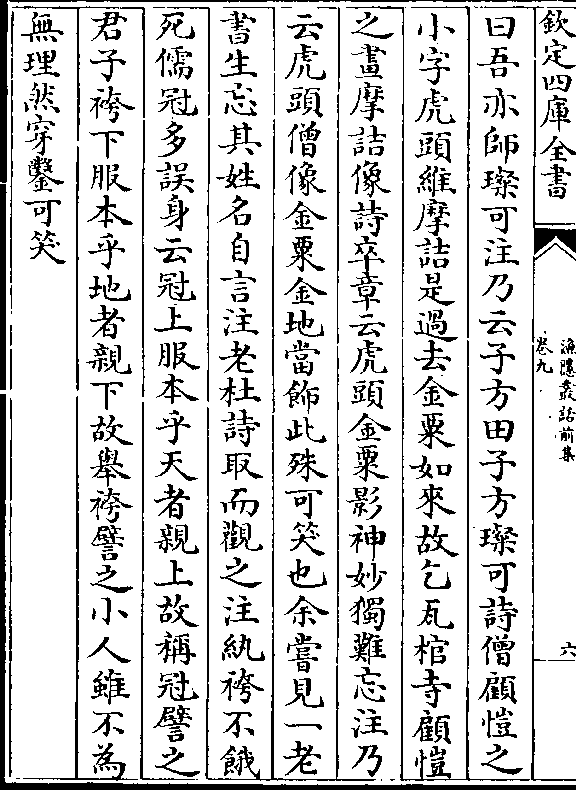 欽定四庫全書
漁隱叢話前集
卷九
六
曰吾亦師璨可注乃云子方田子方璨可詩僧顧愷之
小字虎頭維摩詰是過去金粟如來故乞瓦棺寺顧愷
之畫摩詰像詩卒章云虎頭金粟影神妙獨難忘注乃
云虎頭僧像金粟金地當飾此殊可笑也余嘗見一老
書生忘其姓名自言注老杜詩取而觀之注紈袴不餓
死儒冠多誤身云冠上服本乎天者親上故稱冠譬之
君子袴下服本乎地者親下故舉袴譬之小人雖不為
無理然穿鑿可笑